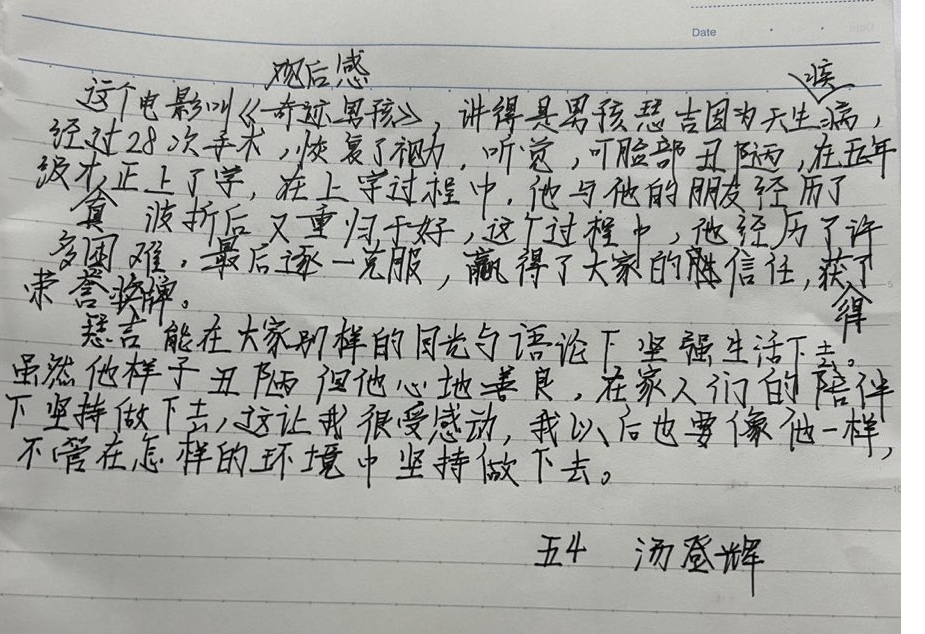 Date
观后感
这个电影叫《奇迹男孩》，讲得是男孩瑟吉因为天生疾病，
经过28次手术，恢复了视力，听觉，可脸部丑陋，在五年
级才真正上了学，在上学过程中，他与他的朋友经历了
波折后又重归于好，这个过程中，他经历了许
多困难，最后逐一克服，赢得了大家的信任，获得了
荣誉奖牌。
瑟吉能在大家别样的目光与语论下坚强生活下去。
虽然他样子丑陋但他心地善良，在家人们的陪伴
下坚持做下去，这让我很受感动，我以后也要像他一样，
不管在怎样的环境中坚持做下去。
五4 汤登辉